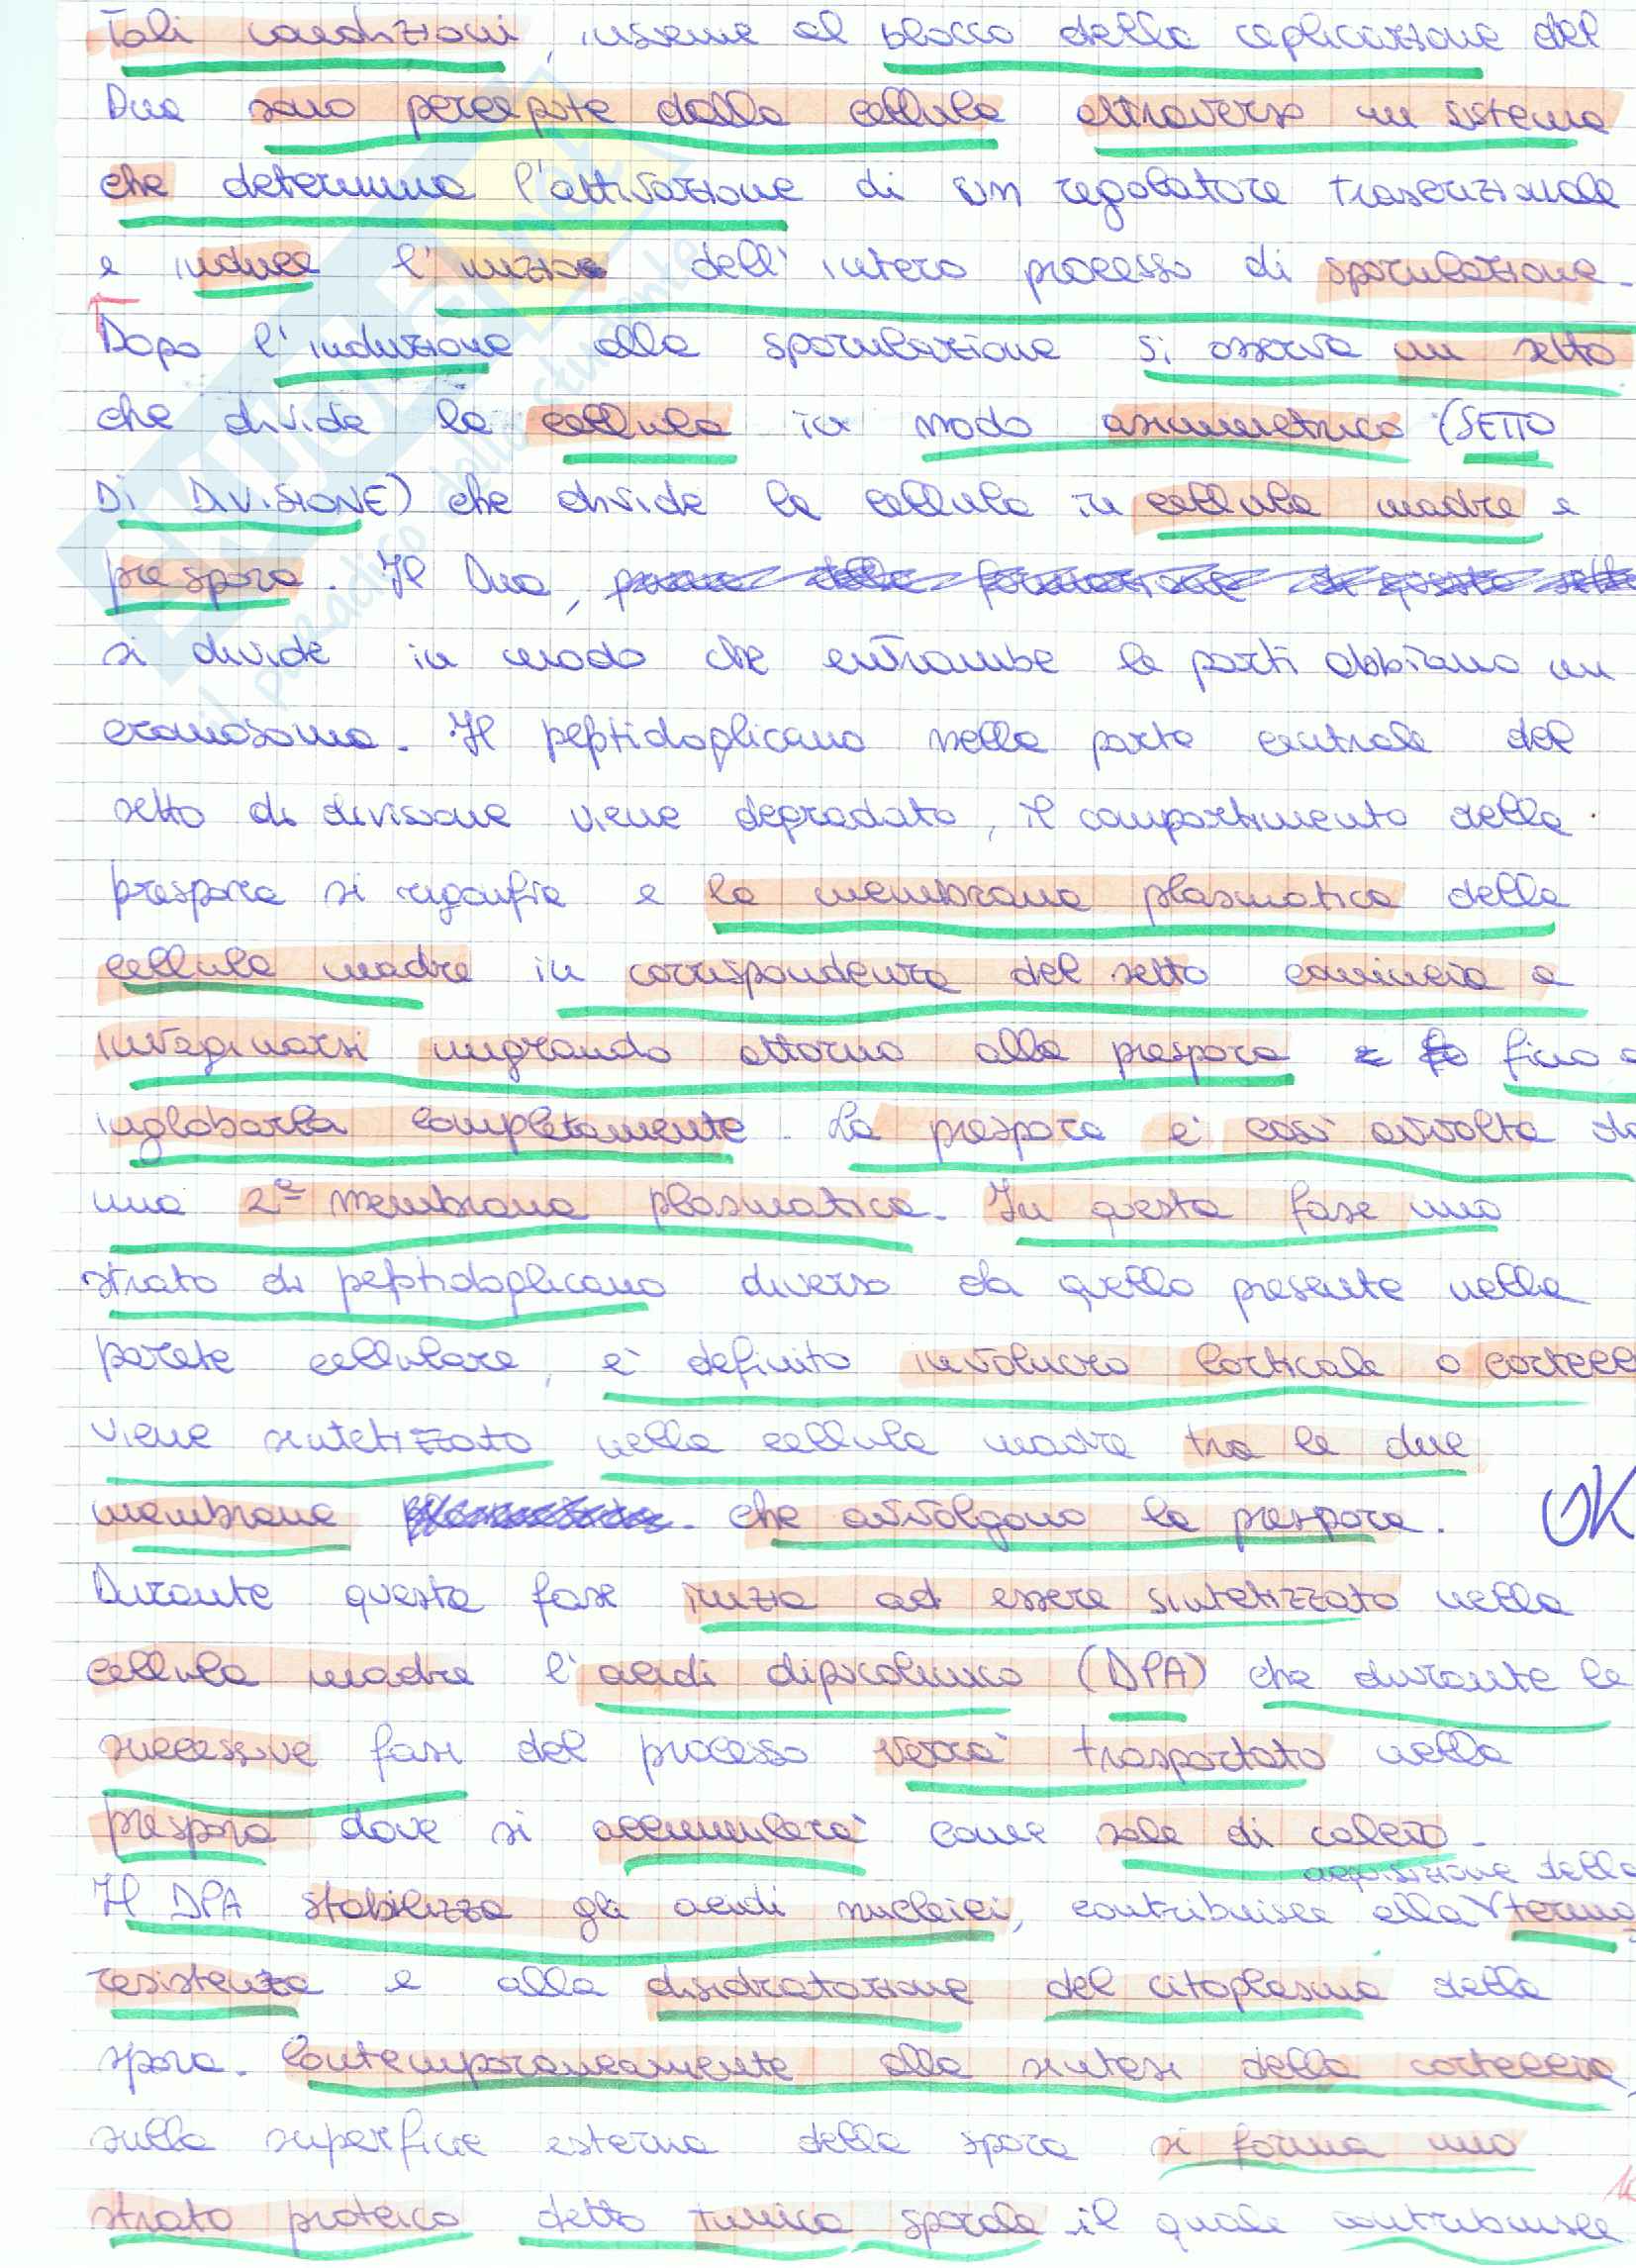 Tali condizioni, insieme al blocco della replicazione del
Dna sono percepite dalla cellula attraverso un sistema
che determina l'attivazione di un regolatore trascrizionale
e induce l'inizio dell'intero processo di sporulazione.
Dopo l'induzione alla sporulazione si osserva un setto
che divide la cellula in modo asimmetrico (SETTO
DI DIVISIONE) che divide la cellula in cellula madre e
prespora. Il Dna,
si divide in modo che entrambe le parti abbiano un
cromosoma. Il peptidoglicano nella parte centrale del
setto di divisione viene degradato, il compartimento della
prespora si rigonfia e la membrana plasmatica della
cellula madre in corrispondenza del setto comincia a
invaginarsi migrando attorno alla prespora fino a
inglobarla completamente. La prespora è così avvolta da
una 2ª membrana plasmatica. In questa fase uno
strato di peptidoglicano diverso da quello presente nella
parete cellulare, è definito involucro corticale o cortecc
viene sintetizzato nella cellula madre tra le due
membrane che avvolgono la prespora. OK
Durante questa fase inizia ad essere sintetizzato nella
cellula madre l'acidi dipicolinico (DPA) che durante le
successive fasi del processo verrà trasportato nella
prespora dove si accumulerà come sale di calcio.
acquisizione della
Il DPA stabilizza gli acidi nucleici, contribuisce alla termo
resistenza e alla disidratazione del citoplasma della
spora. Contemporaneamente alla sintesi della corteccia,
sulla superficie esterna della spora si forma uno
strato proteico detto tunica sporale il quale contribuisce